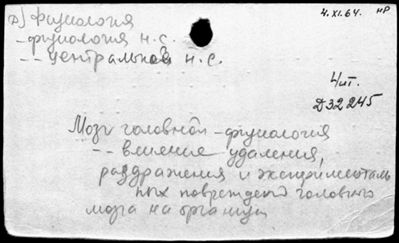 д) физиология
4.XI.64. НР
- физиология н.с.
-- центральной н.с.
4 ит.
Д32245
Мозг головной - физиология
-- влияние удаления,
раздражения и эксперименталь
ных повреждений головного
мозга на организм